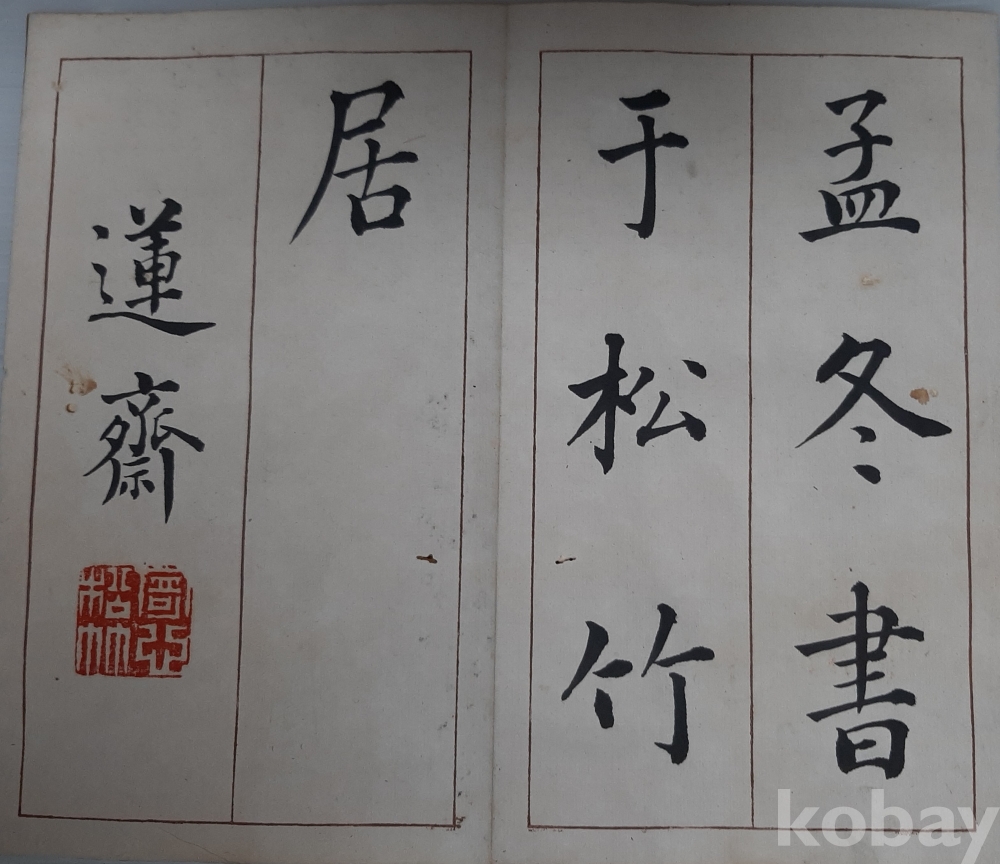 孟冬書
于松竹
居
蓮齋
kobay